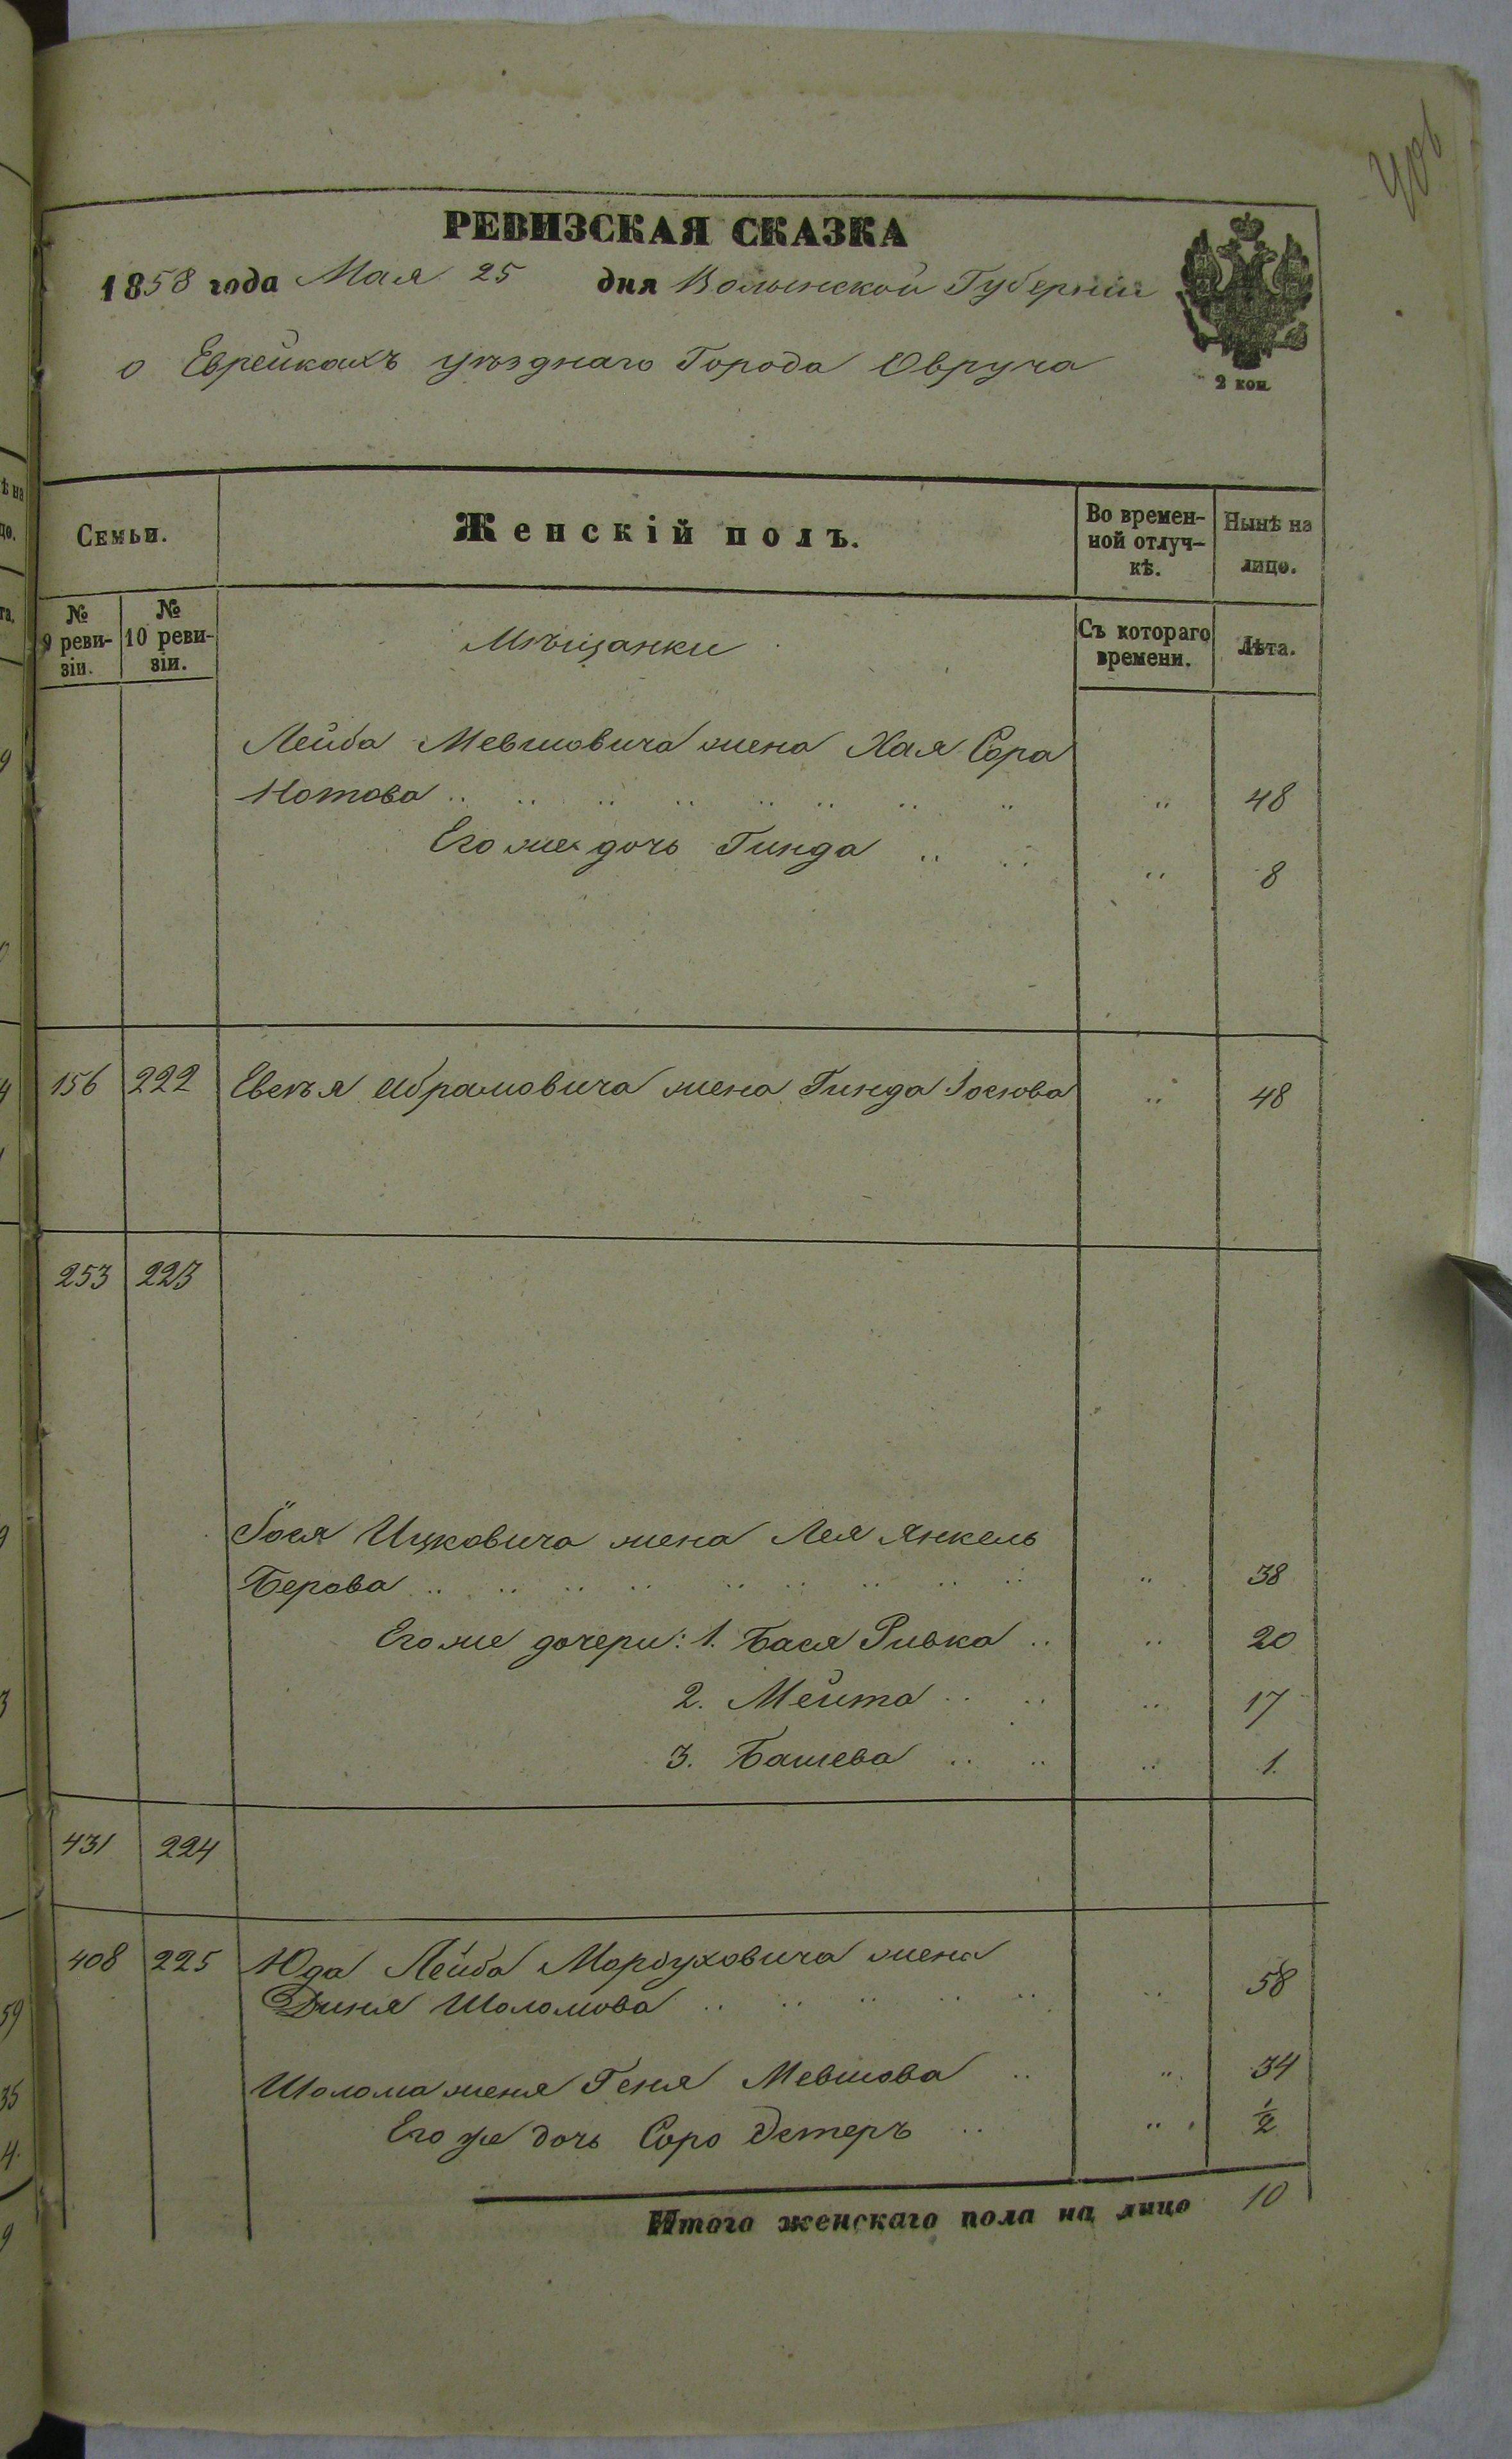 406
РЕВИЗСКАЯ СКАЗКА
1858 года Мая 25 дня Волынской Губернiи
о Еврейкахъ уѣзднаго Города Овруча
2 коп.
Семьи. Женскiй полъ. Во времен-ной отлуч-кѣ. Нынѣ на лицо.
№ 9 реви-зiи. № 10 реви-зiи. Мѣщанки Съ котораго времени. Лѣта.
Лейба Мевшовича жена Хая Сора
Нотова .. .. .. .. .. .. .. .. .. 48
Его же дочь Гинда .. .. .. 8
156 222 Евеля Абрамовича жена Гинда Iосiова .. 48
253 223
Iося Ицковича жена Лея Янкель
Берова .. .. .. .. .. .. .. .. .. .. 38
Его же дочери: 1. Бася Ривка .. .. 20
2. Мейта .. .. .. 17
3. Башева .. .. .. 1.
431 224
408 225 Юда Лейба Мордуховича жена
Диня Шоломова .. .. .. .. .. .. 58
Шолома жена Геня Мевшова .. .. 34
Его же дочь Соро Эстеръ .. .. 1/2
Итого женскаго пола на лицо 10